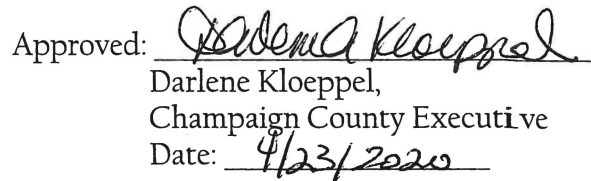 Approved: Darlene Kloeppel
Darlene Kloeppel,
Champaign County Executive
Date: 4/23/2020